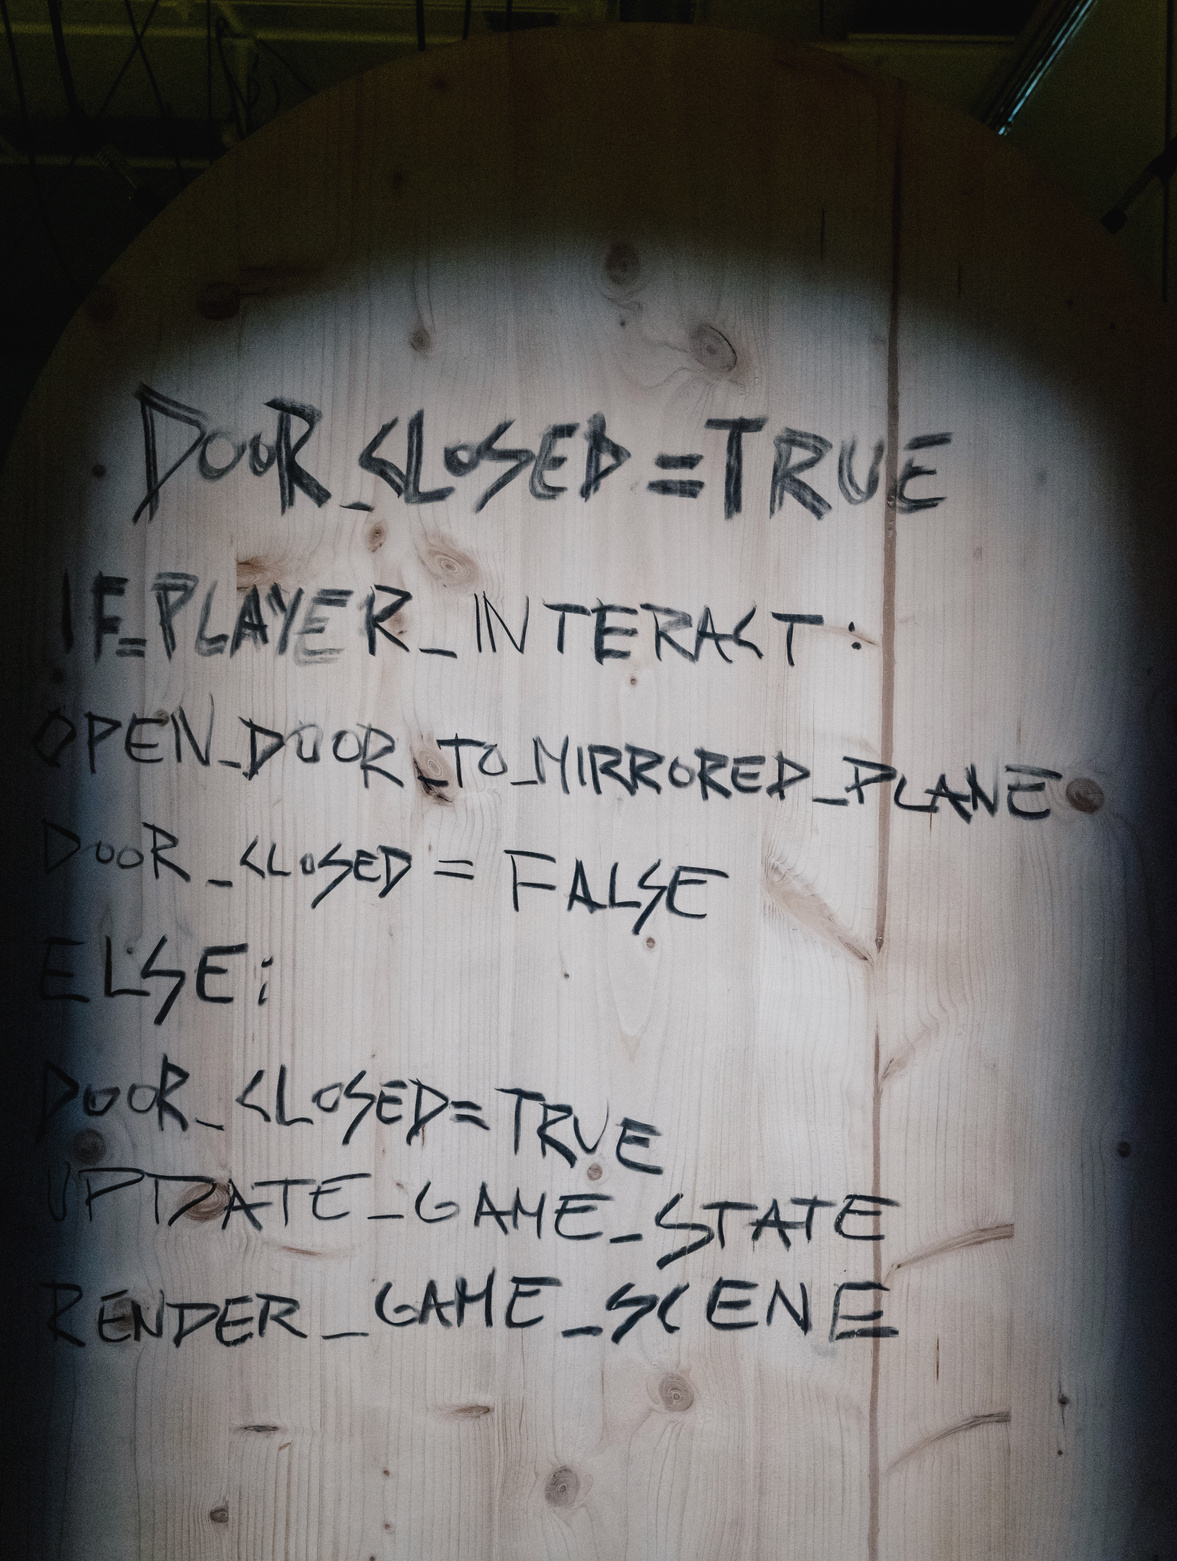 DOOR_CLOSED=TRUE
IF_PLAYER_INTERACT:
OPEN_DOOR_TO_MIRRORED_PLANE
DOOR_CLOSED = FALSE
ELSE:
DOOR_CLOSED=TRUE
UPDATE_GAME_STATE
RENDER_GAME_SCENE